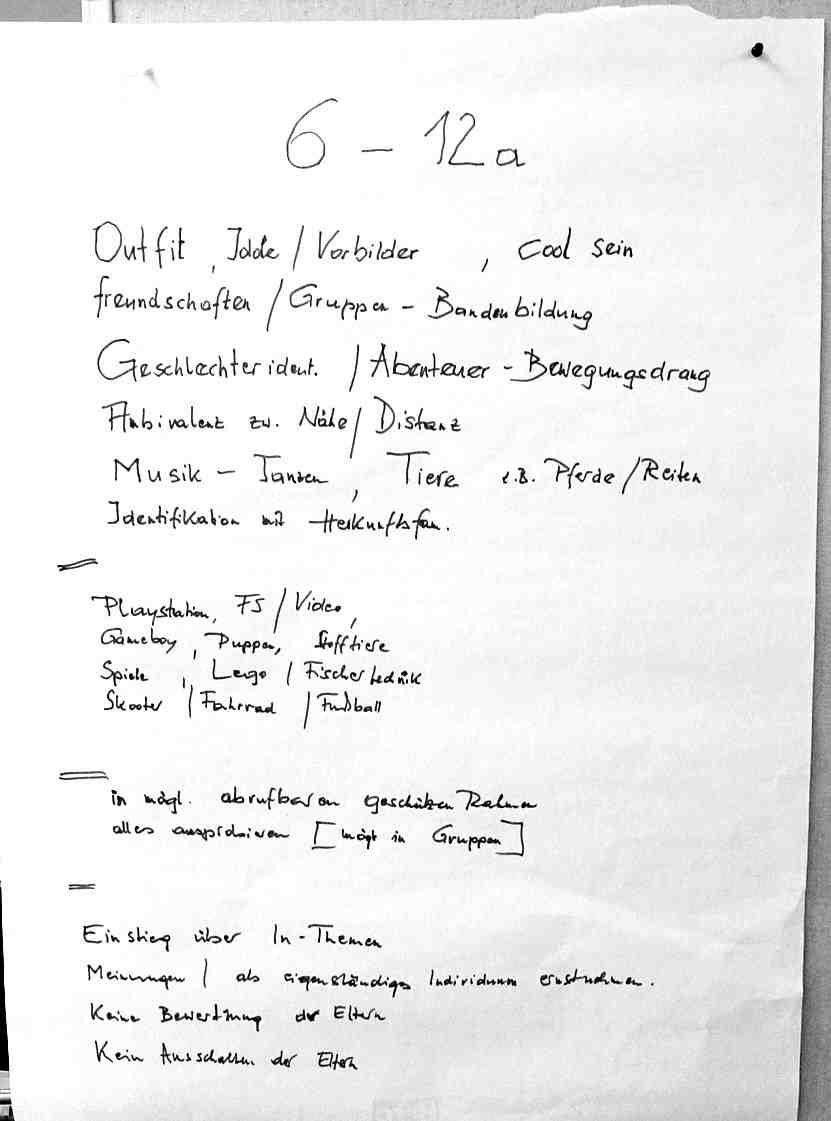 6 - 12a
Outfit, Idole / Vorbilder, cool sein
freundschaften / Gruppen - Bandenbildung
Geschlechterident. / Abenteuer - Bewegungsdrang
Ambivalenz zw. Nähe / Distanz
Musik - Tanzen, Tiere z.B. Pferde / Reiten
Identifikation mit Herkunftsfam.
Playstation, FS / Video,
Gameboy, Puppen, Stofftiere
Spiele, Lego / Fischertechnik
Skooter / Fahrrad / Fußball
in mögl. abrufbaren geschützen Rahmen
alles ausprobieren [mögl in Gruppen]
Einstieg über In-Themen
Meinungen / als eigenständiges Individuum ernstnehmen.
Keine Bewertung der Eltern
Kein Ausschalten der Eltern